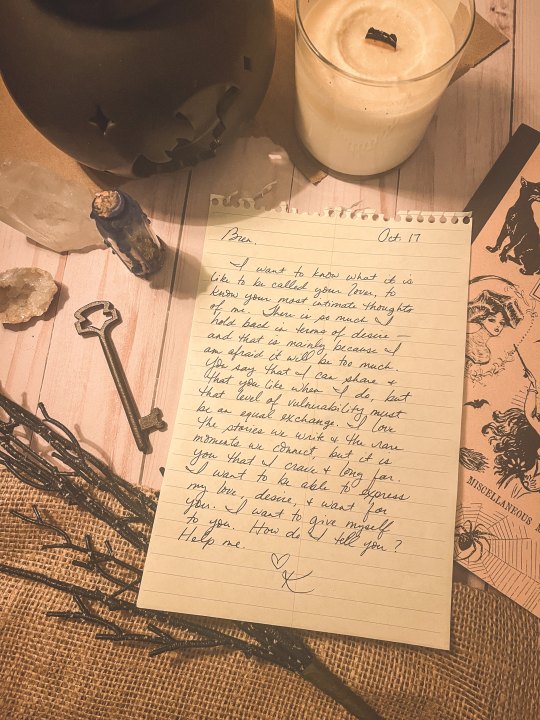 Bren,
Oct. 17
I want to know what it is
like to be called your lover, to
know your most intimate thoughts
of me. There is so much I
hold back in terms of desire
and that is mainly because I
am afraid it will be too much.
You say that I can share &
that you like when I do, but
that level of vulnerability must
be an equal exchange. I love
the stories we write & the rare
moments we connect, but it is
you that I crave & long for.
I want to be able to express
my love, desire, & want for
you. I want to give myself
to you. How do I tell you?
Help me.
♡
K
MISCELLANEOUS